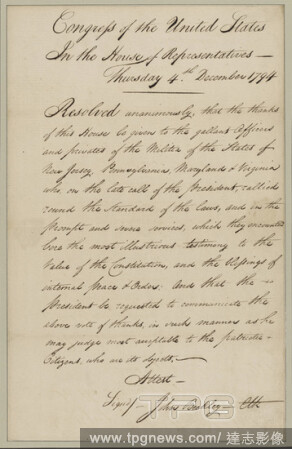 Congress of the United States
In the House of Representatives —
Thursday 4.th December 1794
Resolved unanimously, that the thanks
of this House be given to the gallant Officers
and privates of the Militia of the States of
New Jersey, Pennsylvania, Maryland & Virginia
who on the late call of the President, rallied
round the standard of the laws, and in the
prompt and severe services, which they encountered
bore the most illustrious testimony to the
Value of the Constitution, and the blessings of
internal Peace & Order. And that the
President be requested to communicate the
above vote of thanks, in such manner as he
may judge most acceptable to the patriotic
Citizens, who are its objects.
Attest —
Sign'd — John Beckley — Clk
TPG
www.tpgnews.com/達志影像